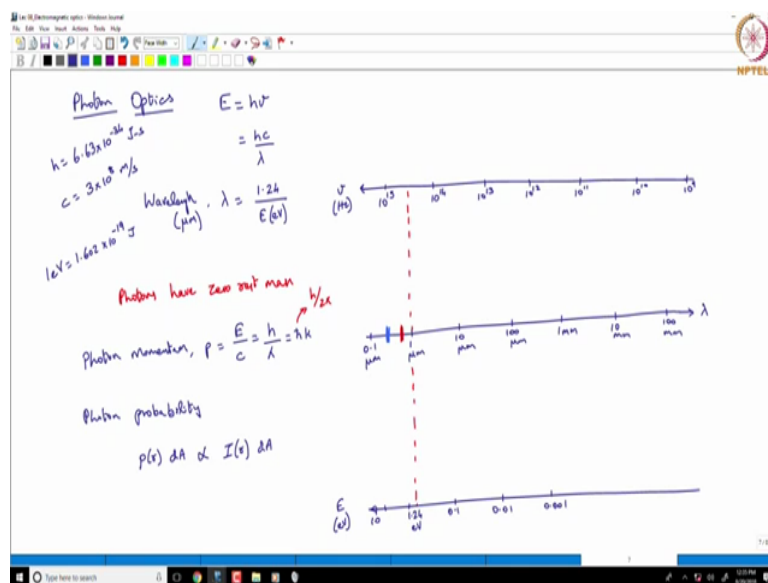 Lec 08_Electromagnetic optics - Windows Journal
File Edit View Insert Actions Tools Help
Page Width
B I
NPTEL
Photon Optics
E = hν
= hc/λ
h = 6.63×10^-34 J-s
c = 3×10^8 m/s
1eV = 1.602×10^-19 J
Wavelength, λ = 1.24/E(eV)
(μm)
Photons have zero rest mass
h/2π
Photon momentum, p = E/c = h/λ = ħk
Photon probability
p(r) dA ∝ I(r) dA
ν
(Hz)
10^15 10^14 10^13 10^12 10^11 10^10 10^9
λ
0.1 μm
μm
10 μm
100 μm
1mm
10 mm
100 mm
E
(eV)
10 1.24 eV 0.1 0.01 0.001
Type here to search
12:35 PM